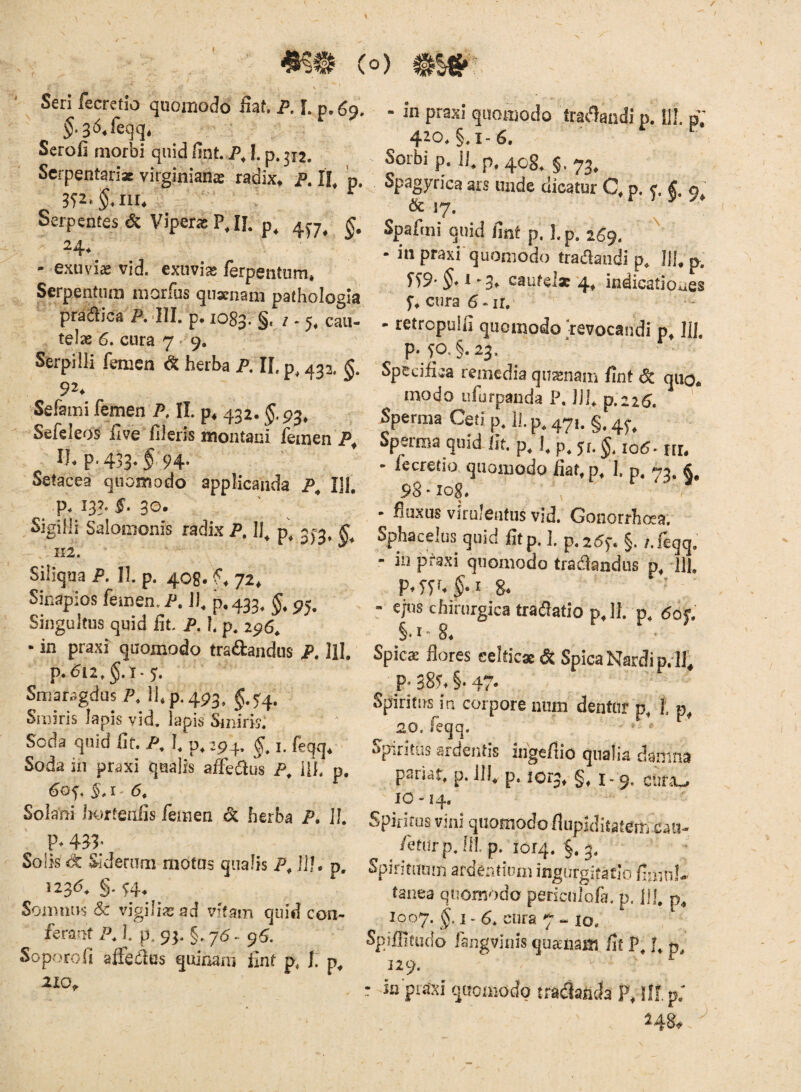 (o)
Seri secretio quomodo fiat. P. I. p. 69.
§. 36. seqq.
Serosi morbi quid sint. P. I. p. 312.
Serpentariæ virginianæ radix. P. II. p.
352. §. 111.
Serpentes & Viperæ P. II. p. 457. §.
24.
- exuviæ vid. exuviæ serpentum.
Serpentum morsus quænam pathologia
practica P. III. p. 1083. §. 1 - 5. cau-
telæ 6. cura 7 - 9.
Serpilli semen & herba P. II. p. 432. §.
92.
Sesami semen P. II. p. 432. §. 93.
Seseleos sive sileris montani semen P.
II. p. 433. § 94.
Setacea quomodo applicanda P. III.
p. 132. §. 30.
Sigilli Salomonis radix P. II. p. 353. §.
112.
Siliqua P. II. p. 408. §. 72.
Sinapios semen. P. II. p. 433. §. 95.
Singultus quid sit. P. I. p. 296.
- in praxi quomodo tractandus P. III.
p. 612. §. 1 - 5.
Smaragdus P. II. p. 493. §. 54.
Smiris lapis vid. lapis Smiris.
Soda quid sit. P. I. p. 294. §. 1. seqq.
Soda in praxi qualis affectus P. III. p.
605. §. 1 - 6.
Solani hortensis semen & herba P. II.
p. 433.
Solis & Siderum motus qualis P. III. p.
1236. §. 54.
Somnus & vigiliæ ad vitam quid con-
ferant P. I. p. 93. §. 76 - 96.
Soporosi affectus quinam sint p. I. p.
210.
- in praxi quomodo tractandi p. III. p.
420. §. 1 - 6.
Sorbi p. II. p. 408. §. 73.
Spagyrica ars unde dicatur C. p. 5. §. 9.
& 17.
Spasmi quid sint p. I. p. 269.
- in praxi quomodo tractandi p. III. p.
559. §. 1 - 3. cautelæ 4. indicationes
5. cura 6 - 11.
- retropulsi quomodo revocandi p. III.
p. 50. §. 23.
Specifica remedia quænam sint & quo.
modo usurpanda P. III. p. 226.
Sperma Ceti p. II. p. 471. §. 45.
Sperma quid sit. p. I. p. 51. §. 106 - 111.
- secretio quomodo fiat, p. I. p. 73. §.
98 - 108.
- fluxus virulentus vid. Gonorrhœa.
Sphacelus quid sit p. I. p. 265. §. 1. seqq.
- in praxi quomodo tractandus p. III.
p. 551. §. 1 8.
- ejus chirurgica tractatio p. II. p. 605.
§. 1 - 8.
Spicæ flores celticæ & Spica Nardi p. II.
p. 385. §. 47.
Spiritus in corpore num dentur p. I. p.
20. seqq.
Spiritus ardentis ingestio qualia damna
pariat, p. III. p. 1013. §. 1 - 9. cura
10 - 14.
Spiritus vini quomodo stupiditatem cau-
setur p. III. p. 1014. §. 3.
Spirituum ardentium ingurgitatio simul-
tanea quomodo periculosa. p. III. p.
1007. §. 1 - 6. cura 7 - 10.
Spissitudo sangvinis quænam sit P. I. p.
129.
- in praxi quomodo tractanda P. III. p.
248.